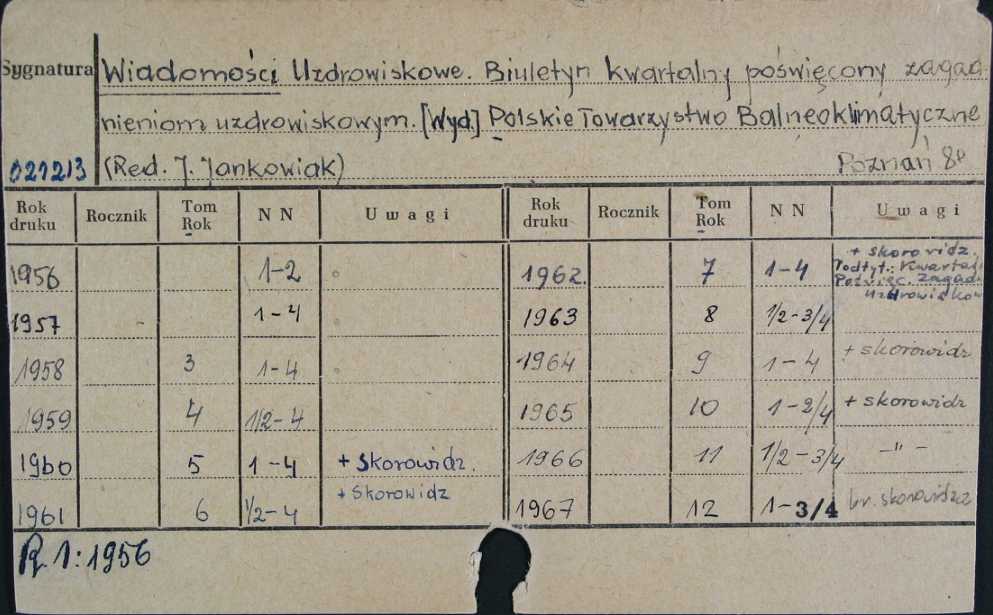 Sygnatura Wiadomości Uzdrowiskowe. Biuletyn kwartalny poświęcony zagad
nieniom uzdrowiskowym. [Wyd.] Polskie Towarzystwo Balneoklimatyczne
021213 (Red. J. Jankowiak) Poznań 8º
Rok druku Rocznik Tom Rok NN Uwagi Rok druku Rocznik Tom Rok NN Uwagi
1956 1-2 1962. 7 1-4 + skorowidz.
Podtyt.: Kwartal.
Poświęc. zagad.
uzdrowiskow
1957 1-4 1963 8 1/2-3/4
1958 3 1-4 1964 9 1-4 + skorowidz
1959 4 1/2-4 1965 10 1-2/4 + skorowidz
1960 5 1-4 + skorowidz. 1966 11 1/2-3/4 -"-
1961 6 1/2-4 + skorowidz 1967 12 1-3/4 br. skorowidza
R. 1: 1956